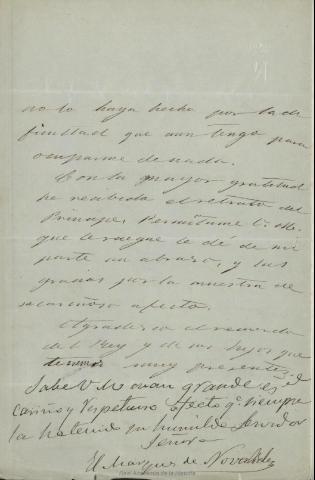 no lo haya hecho por la di
ficultad que aun tengo para
ocuparme de nada.
Con la mayor gratitud
he recibido el retrato del
Principe, Permitame V. M.
que le ruegue le dé de mi
parte un abrazo, y las
gracias por la muestra de
su cariñoso afecto.
Agradezco el recuerdo
del Rey y de sus hijos que
muy presente
Sabe V. M. cuan grande es el
cariño y respetuoso afecto q. siempre
la ha tenido su humilde servidor
Señora
El Marques de Novaliches
Real Academia de la Historia